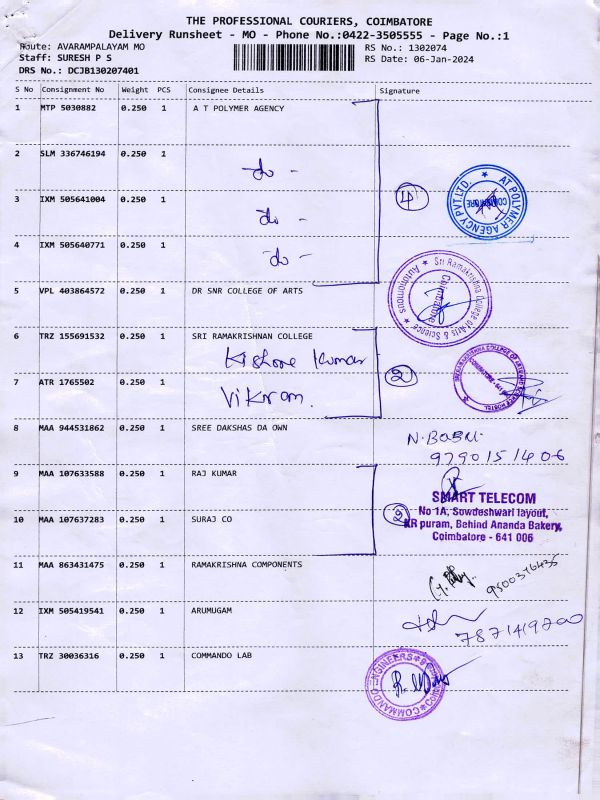 THE PROFESSIONAL COURIERS, COIMBATORE
Delivery Runsheet - MO - Phone No.:0422-3505555 - Page No.:1
Route: AVARAMPALAYAM MO RS No.: 1302074
Staff: SURESH P S RS Date: 06-Jan-2024
DRS No.: DCJB130207401
S No Consignment No Weight PCS Consignee Details Signature
1 MTP 5030882 0.250 1 A T POLYMER AGENCY
2 SLM 336746194 0.250 1
do -
3 IXM 505641004 0.250 1
do -
4
AT POLYMER AGENCY PVT.LTD.
COIMBATORE
4 IXM 505640771 0.250 1
do -
5 VPL 403864572 0.250 1 DR SNR COLLEGE OF ARTS
Sri Ramakrishna College of Arts & Science
Autonomous
Coimbatore
6 TRZ 155691532 0.250 1 SRI RAMAKRISHNAN COLLEGE
Kishore Kumar
2
7 ATR 1765502 0.250 1
Vikram.
8 MAA 944531862 0.250 1 SREE DAKSHAS DA OWN
N. BABU.
9790151406
9 MAA 107633588 0.250 1 RAJ KUMAR
SMART TELECOM
No 1A, Sowdeshwari layout,
KR puram, Behind Ananda Bakery,
Coimbatore - 641 006
2
10 MAA 107637283 0.250 1 SURAJ CO
11 MAA 863431475 0.250 1 RAMAKRISHNA COMPONENTS
9500376435
12 IXM 505419541 0.250 1 ARUMUGAM
7871419200
13 TRZ 30036316 0.250 1 COMMANDO LAB
COMMANDO ENGINEERS